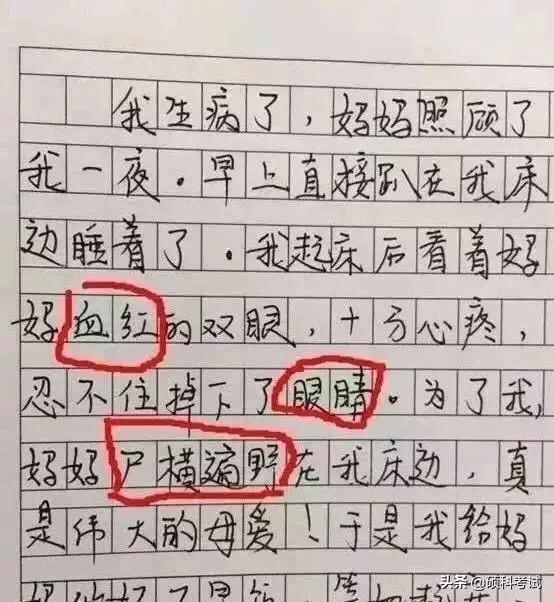 我生病了，妈妈照顾了
我一夜。早上直接趴在我床
边睡着了。我起床后看着妈
妈血红的双眼，十分心疼，
忍不住掉下了眼睛。为了我，
妈妈尸横遍野在我床边，真
是伟大的母爱！于是我给妈
头条 @硕科考试